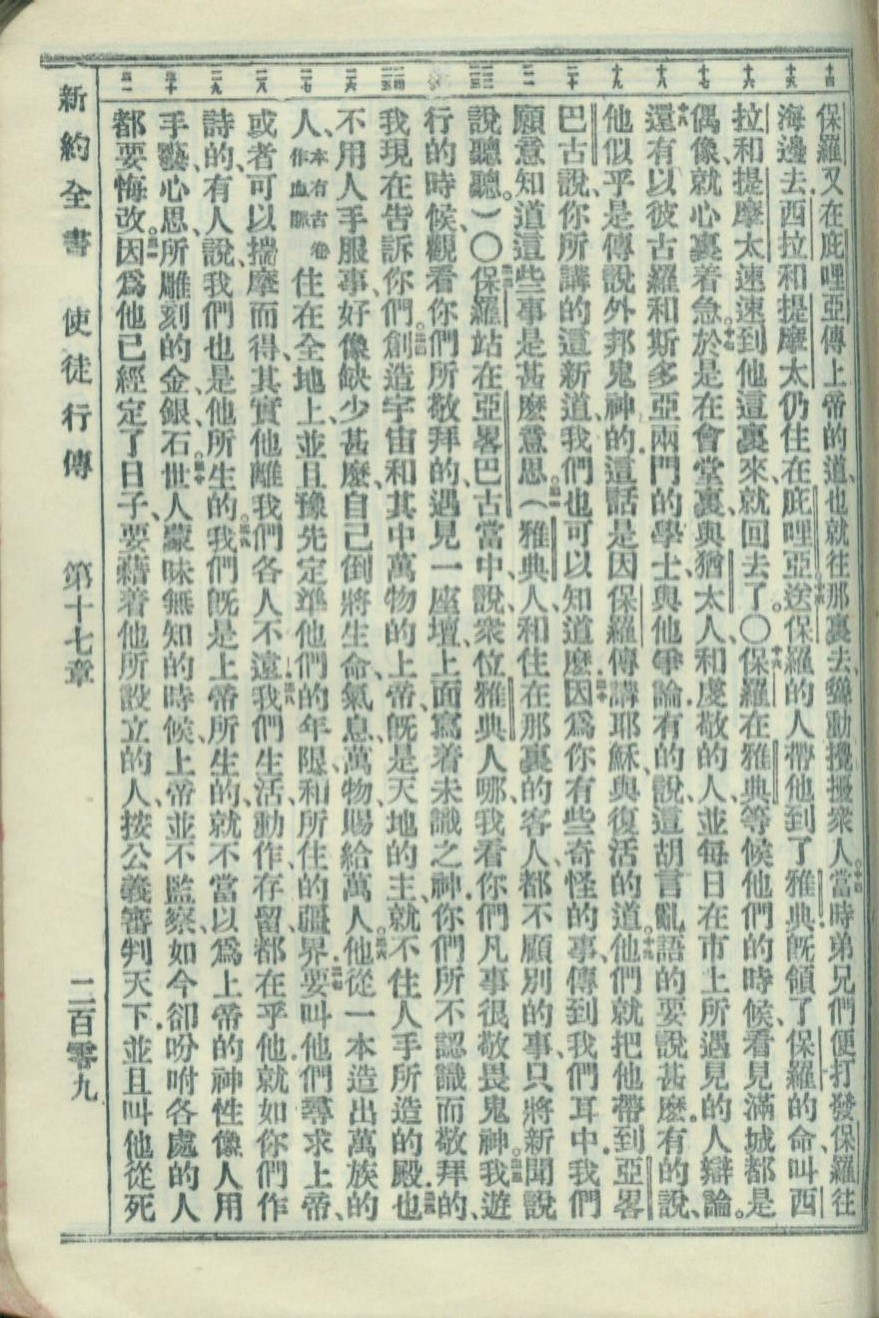 保羅又在庇哩亞傳上帝的道、也就往那裏去、聳動攪擾衆人。當時弟兄們便打發保羅往
海邊去.西拉和提摩太仍住在庇哩亞。送保羅的人帶他到了雅典.既領了保羅的命、叫西
拉和提摩太速速到他這裏來、就回去了。〇保羅在雅典等候他們的時候、看見滿城都是
偶像、就心裏着急。於是在會堂裏、與猶太人、和虔敬的人、並每日在市上所遇見的人辯論。
還有以彼古羅和斯多亞兩門的學士、與他爭論.有的說、這胡言亂語的要說甚麽.有的說、
他似乎是傳說外邦鬼神的.這話是因保羅傳講耶穌與復活的道。他們就把他帶到亞畧
巴古說、你所講的這新道、我們也可以知道麽.因爲你有些奇怪的事、傳到我們耳中.我們
願意知道這些事是甚麽意思。（雅典人、和住在那裏的客人、都不顧別的事、只將新聞說
說聽聽。）〇保羅站在亞畧巴古當中、說、衆位雅典人哪、我看你們凡事很敬畏鬼神。我遊
行的時候、觀看你們所敬拜的、遇見一座壇、上面寫着未識之神.你們所不認識而敬拜的、
我現在告訴你們。創造宇宙和其中萬物的上帝、既是天地的主、就不住人手所造的殿.也
不用人手服事、好像缺少甚麽、自己倒將生命、氣息、萬物、賜給萬人。他從一本造出萬族的
人、本有古卷作血脈住在全地上、並且豫先定準他們的年限、和所住的疆界.要叫他們尋求上帝、
或者可以揣摩而得、其實他離我們各人不遠.我們生活、動作、存留、都在乎他.就如你們作
詩的、有人說、我們也是他所生的。我們既是上帝所生的、就不當以爲上帝的神性、像人用
手藝、心思、所雕刻的金、銀、石。世人蒙昧無知的時候、上帝並不監察.如今卻吩咐各處的人
都要悔改。因爲他已經定了日子、要藉着他所設立的人、按公義審判天下.並且叫他從死
新約全書 使徒行傳 第十七章 二百零九